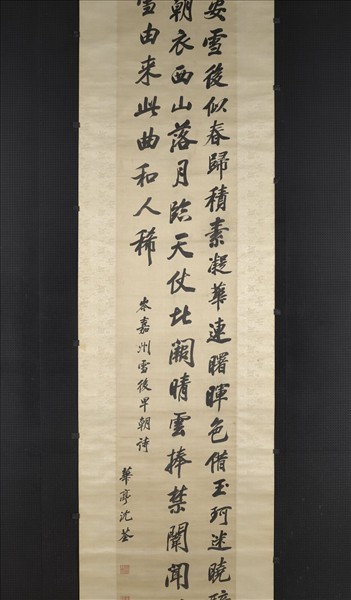 安雪後似春歸積素凝華連曙暉色借玉珂迷曉
朝衣西山落月臨天仗北闕晴雲捧禁闈聞
雪由来此曲和人稀
岑嘉州雪後早朝詩
華亭沈荃